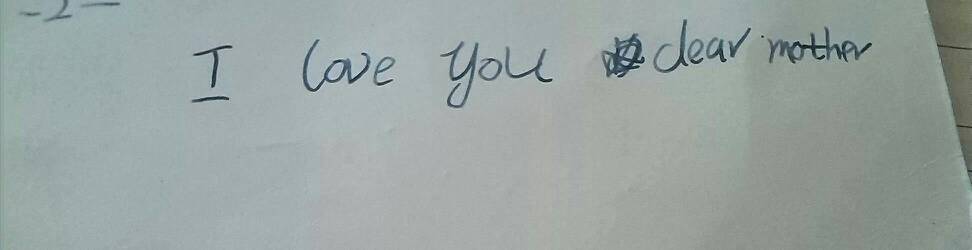 -2-
I love you dear mother